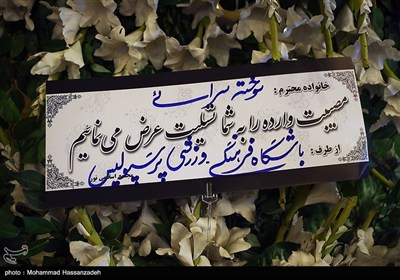 خانواده محترم: سوخته سرائی
مصیبت وارده را به شما تسلیت عرض می نمائیم
از طرف: باشگاه فرهنگی ورزشی پرسپولیس
Photo : Mohammad Hassanzadeh